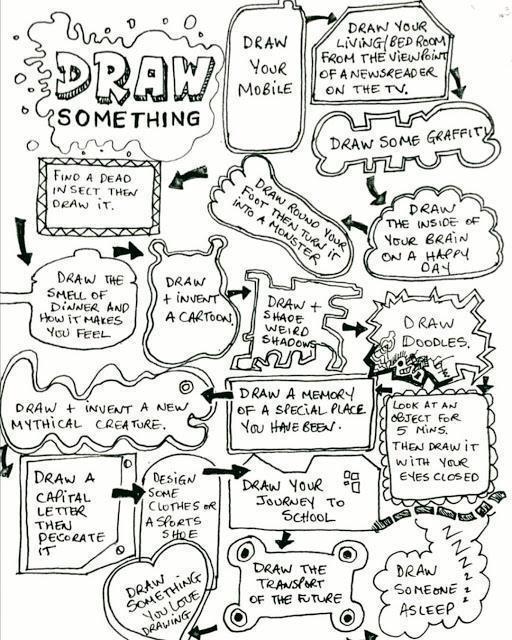 DRAW
SOMETHING
DRAW
YOUR
MOBILE
DRAW YOUR
LIVING/BEDROOM
FROM THE VIEWPOINT
OF A NEWSREADER
ON THE TV.
DRAW SOME GRAFFITI
DRAW
THE INSIDE OF
YOUR BRAIN
ON A HAPPY
DAY
DRAW ROUND YOUR
FOOT THEN TURN IT
INTO A MONSTER
FIND A DEAD
INSECT THEN
DRAW IT.
DRAW THE
SMELL OF
DINNER AND
HOW IT MAKES
YOU FEEL
DRAW
+ INVENT
A CARTOON.
DRAW +
SHADE
WEIRD
SHADOWS
DRAW
DOODLES.
LOOK AT AN
OBJECT FOR
5 MINS.
THEN DRAW IT
WITH YOUR
EYES CLOSED
DRAW A MEMORY
OF A SPECIAL PLACE
YOU HAVE BEEN.
DRAW + INVENT A NEW
MYTHICAL CREATURE.
DRAW A
CAPITAL
LETTER
THEN
DECORATE
IT
DESIGN
SOME
CLOTHES OR
A SPORTS
SHOE
DRAW YOUR
JOURNEY TO
SCHOOL
ZZZZZ
DRAW
SOMEONE
ASLEEP
DRAW THE
TRANSPORT
OF THE FUTURE
DRAW
SOMETHING
YOU LOVE
DRAWING